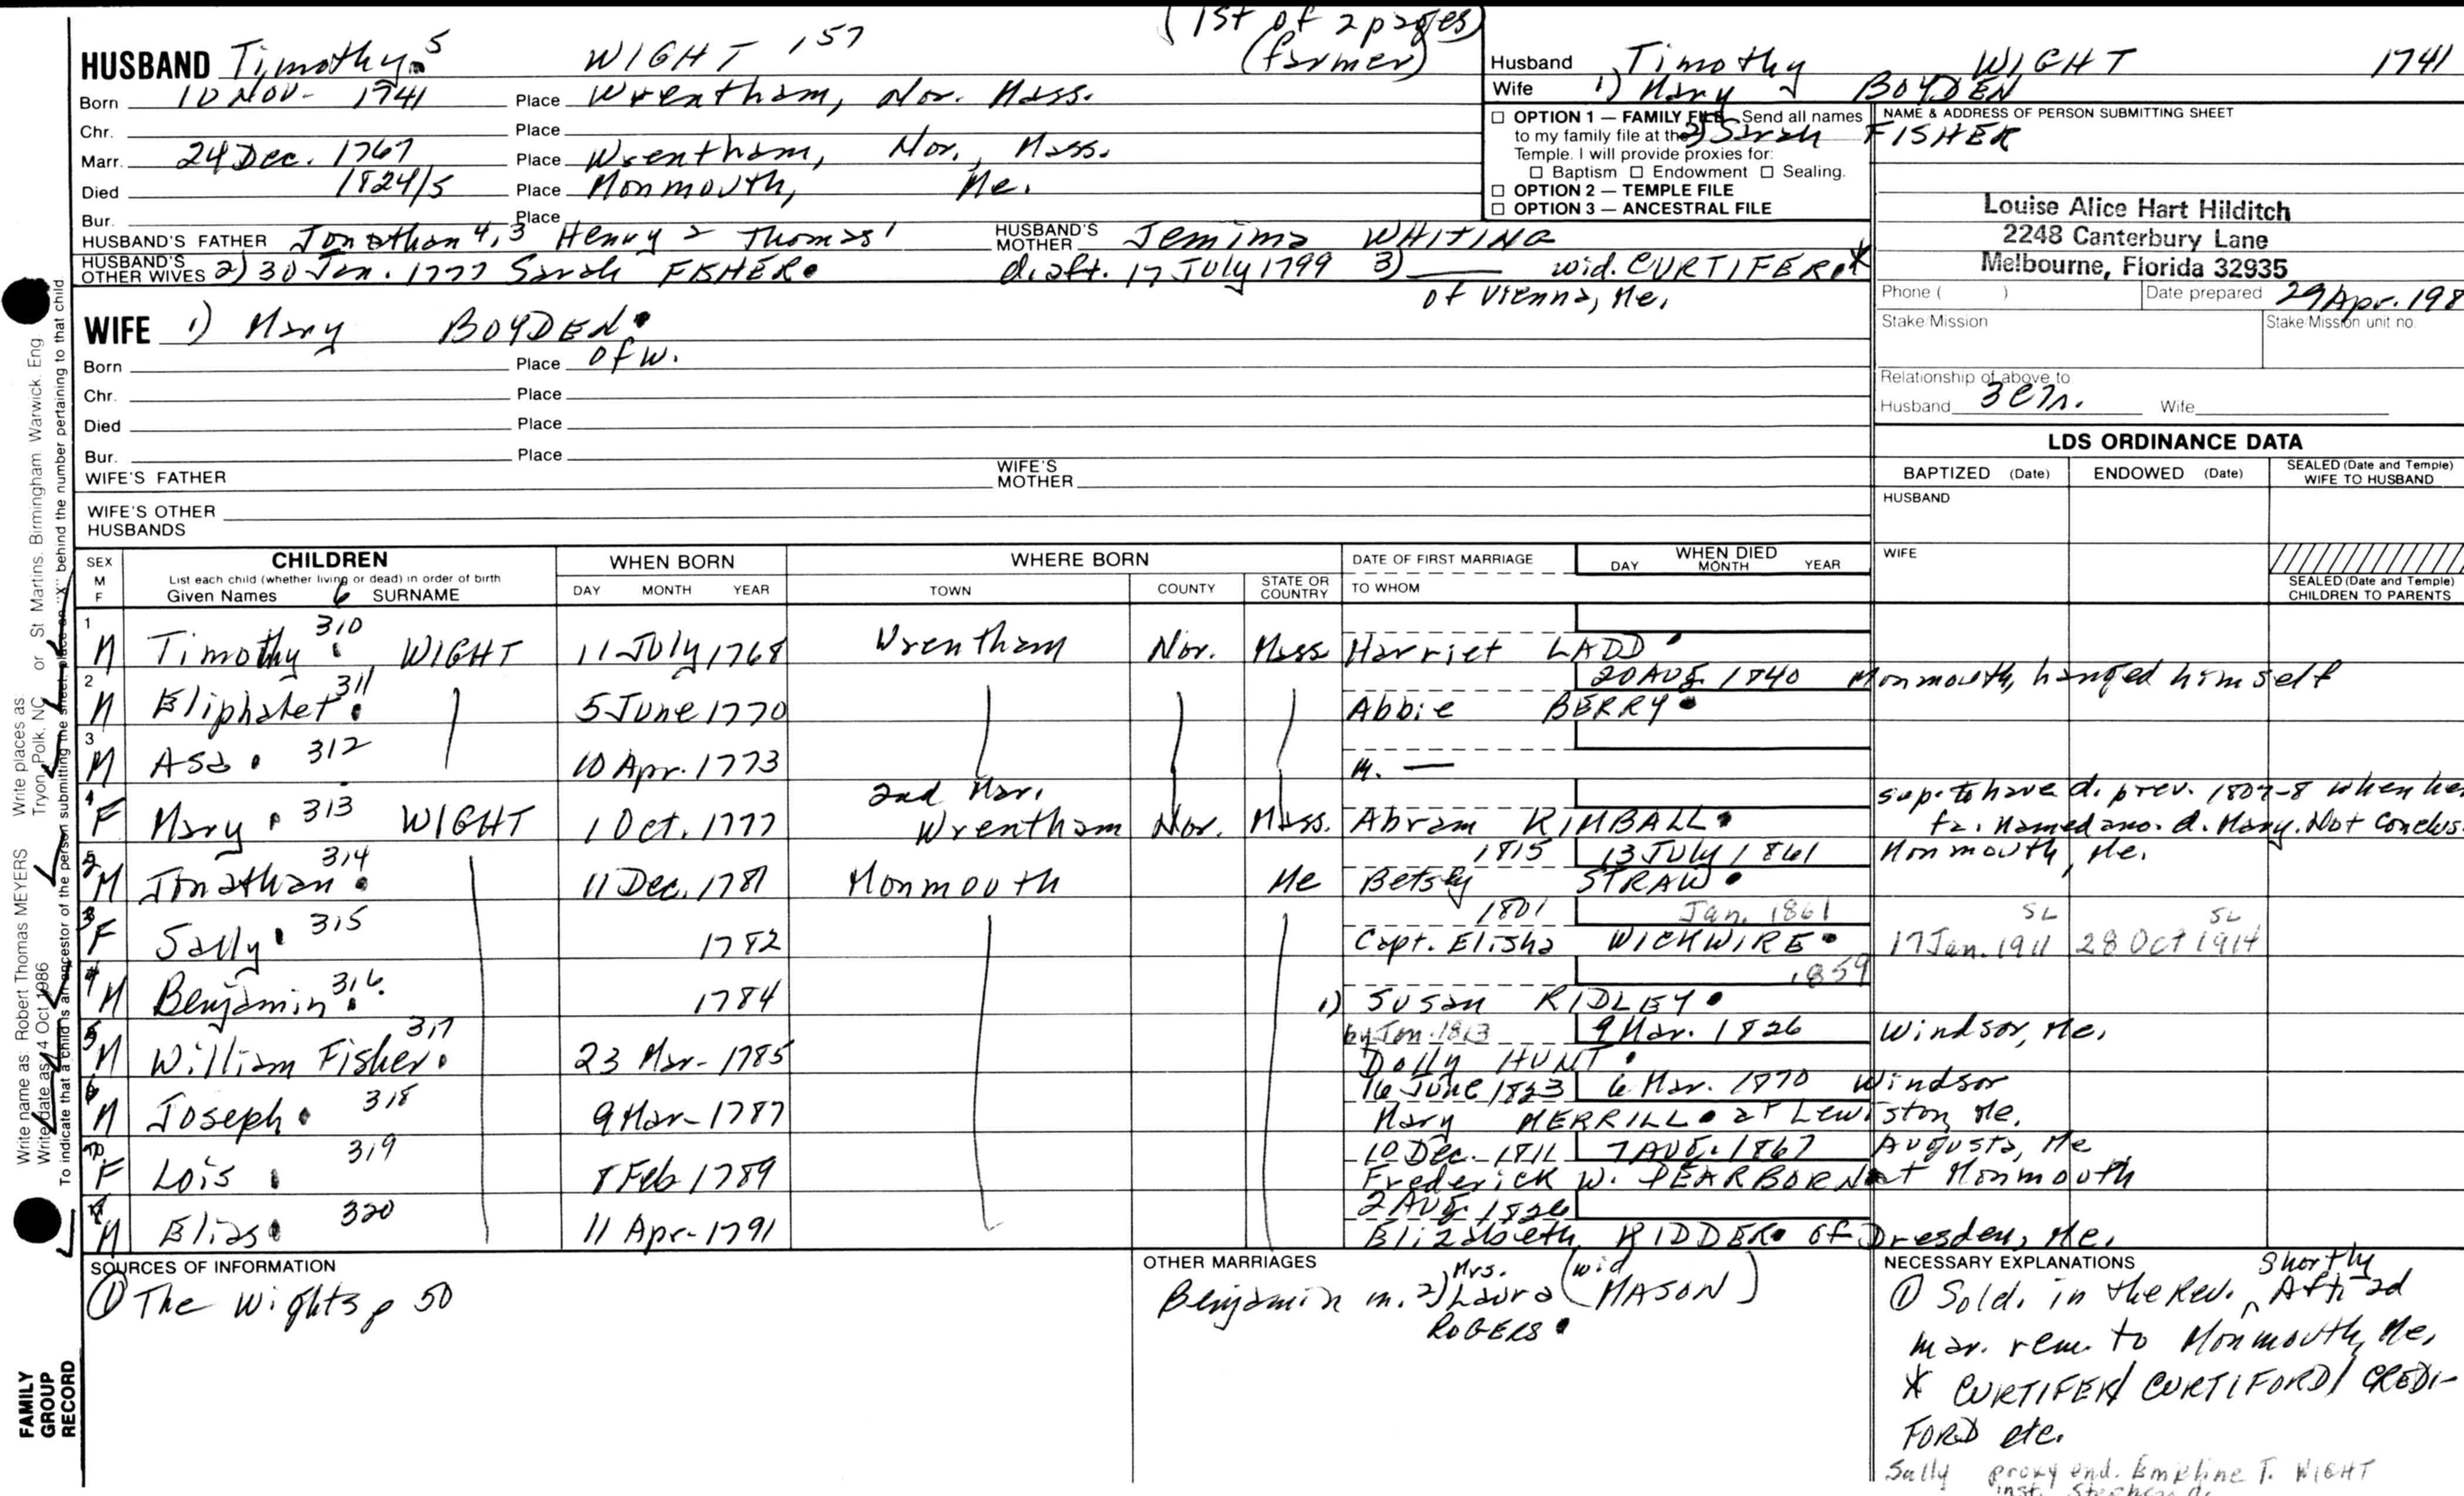 (1st of 2 pages)
(farmer)
HUSBAND Timothy 5 WIGHT 157
Born 10 Nov. 1741 Place Wrentham, Nor. Mass.
Chr. Place
Marr. 24 Dec. 1767 Place Wrentham, Nor., Mass.
Died 1824/5 Place Monmouth, Me.
Bur. Place
HUSBAND'S FATHER Jonathan 4,3 Henry 2 Thomas 1 HUSBAND'S MOTHER Jemima WHITING
HUSBAND'S OTHER WIVES 2) 30 Jan. 1777 Sarah FISHER d. aft. 17 July 1799 3) wid. CURTIFER *
of Vienna, Me.
WIFE 1) Mary BOYDEN
Born Place of W.
Chr. Place
Died Place
Bur. Place
WIFE'S FATHER WIFE'S MOTHER
WIFE'S OTHER HUSBANDS
Husband Timothy WIGHT 1741
Wife 1) Mary BOYDEN
2) Sarah FISHER
☐ OPTION 1 — FAMILY FILE Send all names
to my family file at the
Temple. I will provide proxies for:
☐ Baptism ☐ Endowment ☐ Sealing.
☐ OPTION 2 — TEMPLE FILE
☐ OPTION 3 — ANCESTRAL FILE
NAME & ADDRESS OF PERSON SUBMITTING SHEET
Louise Alice Hart Hilditch
2248 Canterbury Lane
Melbourne, Florida 32935
Phone ( ) Date prepared 29 Apr. 198
Stake/Mission Stake/Mission unit no.
Relationship of above to:
Husband Wife
LDS ORDINANCE DATA
BAPTIZED (Date) ENDOWED (Date) SEALED (Date and Temple) WIFE TO HUSBAND
HUSBAND
WIFE
SEALED (Date and Temple) CHILDREN TO PARENTS
SEX M F CHILDREN WHEN BORN WHERE BORN DATE OF FIRST MARRIAGE WHEN DIED
List each child (whether living or dead) in order of birth DAY MONTH YEAR
Given Names 6 SURNAME DAY MONTH YEAR TOWN COUNTY STATE OR COUNTRY TO WHOM
1 M Timothy 310 WIGHT 11 July 1768 Wrentham Nor. Mass Harriet LADD
20 Aug. 1840 Monmouth, hanged himself
2 M Eliphalet 311 5 June 1770 Abbie BERRY
3 M Asa 312 10 Apr. 1773 m. —
2nd Mar.
sup. to have d. prev. 1807-8 when her
F Mary 313 WIGHT 1 Oct. 1777 Wrentham Nor. Mass. Abram KIMBALL fa. named ano. d. Mary. Not Conclus.
1815 13 July 1861 Monmouth, Me.
M Jonathan 314 11 Dec. 1781 Monmouth Me Betsey STRAW
1801 Jan. 1861 SL SL
F Sally 315 1782 Capt. Elisha WICKWIRE 17 Jan. 1911 28 Oct 1914
1859
M Benjamin 316 1784 1) Susan RIDLEY
by Jan. 1813 9 Mar. 1826 Windsor, Me.
M William Fisher 317 23 Mar. 1785 Dolly HUNT
16 June 1823 6 Mar. 1870 Windsor
M Joseph 318 9 Mar. 1787 Mary MERRILL at Lewiston, Me.
10 Dec. 1811 7 Aug. 1867 Augusta, Me
F Lois 319 8 Feb 1789 Frederick W. DEARBORN at Monmouth
2 Aug. 1826
M Elias 320 11 Apr. 1791 Elizabeth KIDDER of Dresden, Me.
SOURCES OF INFORMATION
① The Wights p 50
OTHER MARRIAGES
Benjamin m. 2) Mrs. Laura (wid MASON)
ROGERS
NECESSARY EXPLANATIONS
① Sold. in the Rev. Shortly Aft. 2d
mar. rem. to Monmouth, Me.
* CURTIFER/ CURTIFORD/ CREDI-
FORD etc.
Sally proxy end. Emeline T. WIGHT
inst.
Write name as: Robert Thomas MEYERS Write places as: Tryon, Polk, NC or St Martins, Birmingham Warwick, Eng
Write date as: 4 Oct 1986
To indicate that a child is an ancestor of the person submitting the sheet, place an "X" behind the number pertaining to that child.
FAMILY
GROUP
RECORD